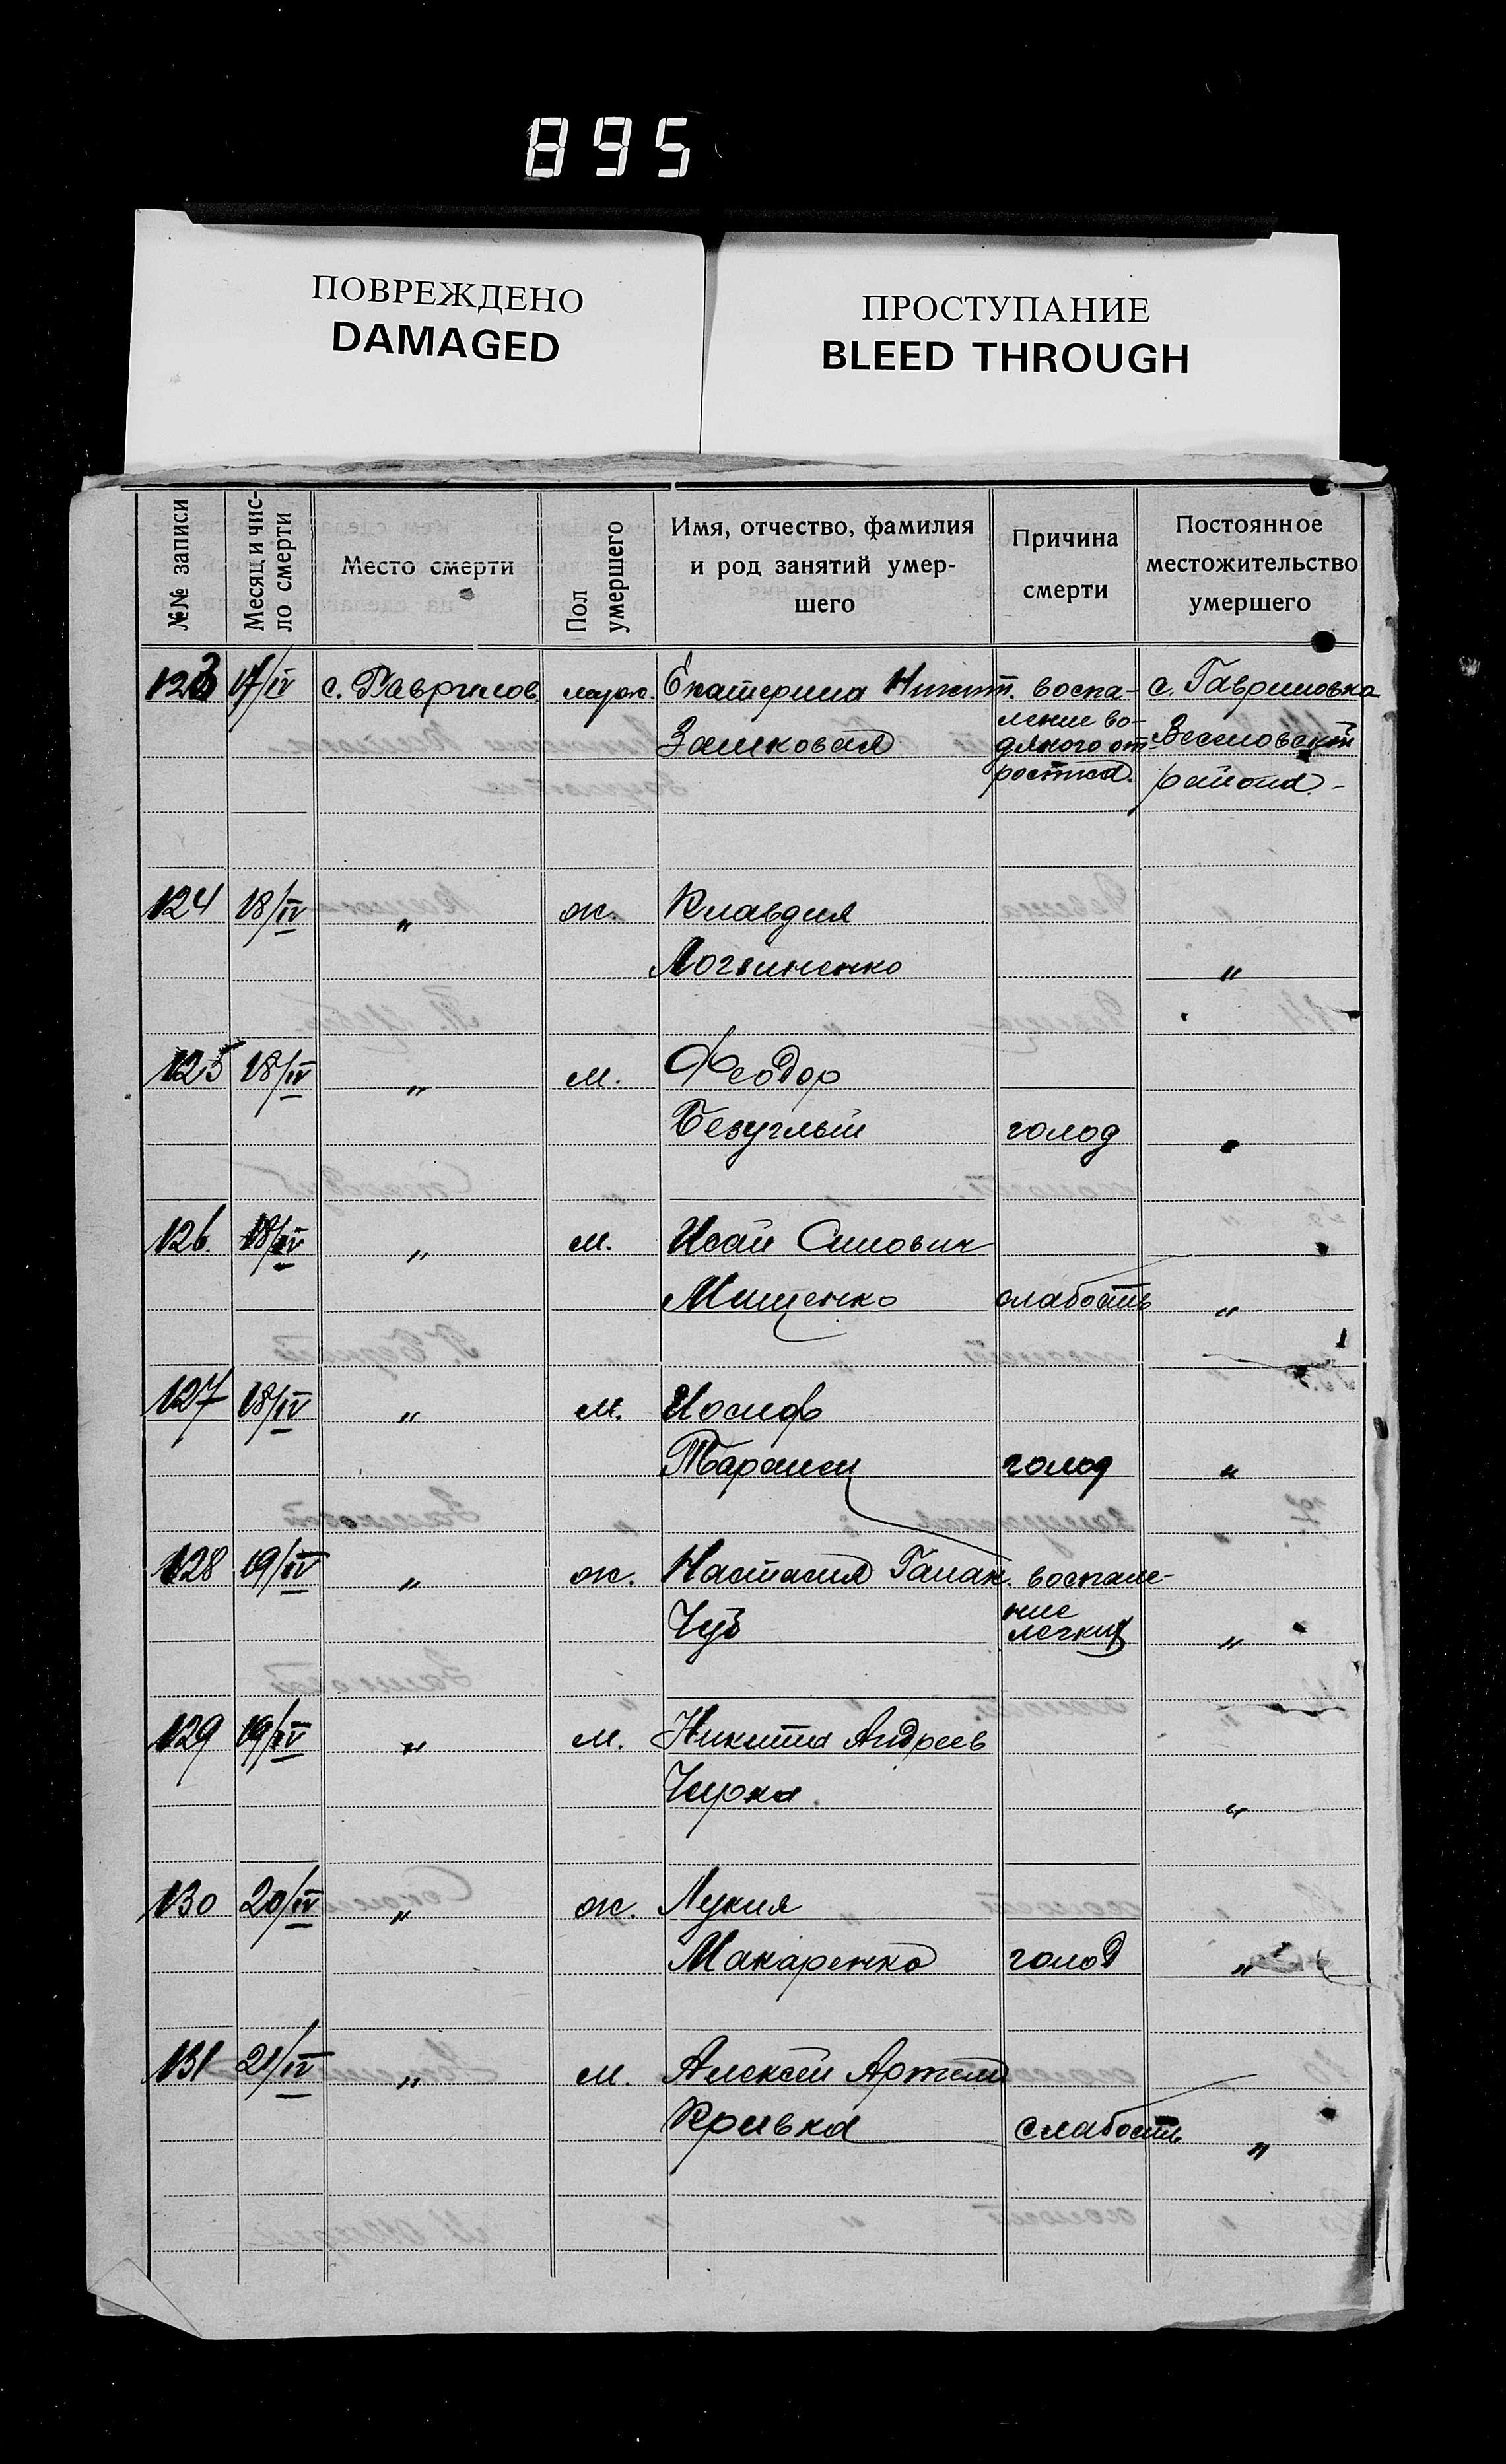 895
ПОВРЕЖДЕНО
DAMAGED
ПРОСТУПАНИЕ
BLEED THROUGH
№№ записи
Месяц и чис-
ло смерти
Место смерти
Пол
умершего
Имя, отчество, фамилия
и род занятий умер-
шего
Причина
смерти
Постоянное
местожительство
умершего
123 17/IV с. Гаврилов. муж. Екатерина Никит. воспа- с. Гавриловка
ление во-
Зашковая дяного от- Веселовский
ростка. района.-
124 18/IV " ж. Клавдия
Логвиненко "
125 18/IV " м. Феодор
Безуглый голод "
126. 18/IV " м. Исай Силович
Мищенко слабость "
127 18/IV " м. Иосиф
голод "
128 19/IV " ж. Настасия воспале-
ние
Чуб легких "
129 19/IV " м. Никита Андреев
Чирка. "
130 20/IV " ж. Лукия
Макаренко голод "
131 21/IV " м. Алексей Артем
Кривка слабость "